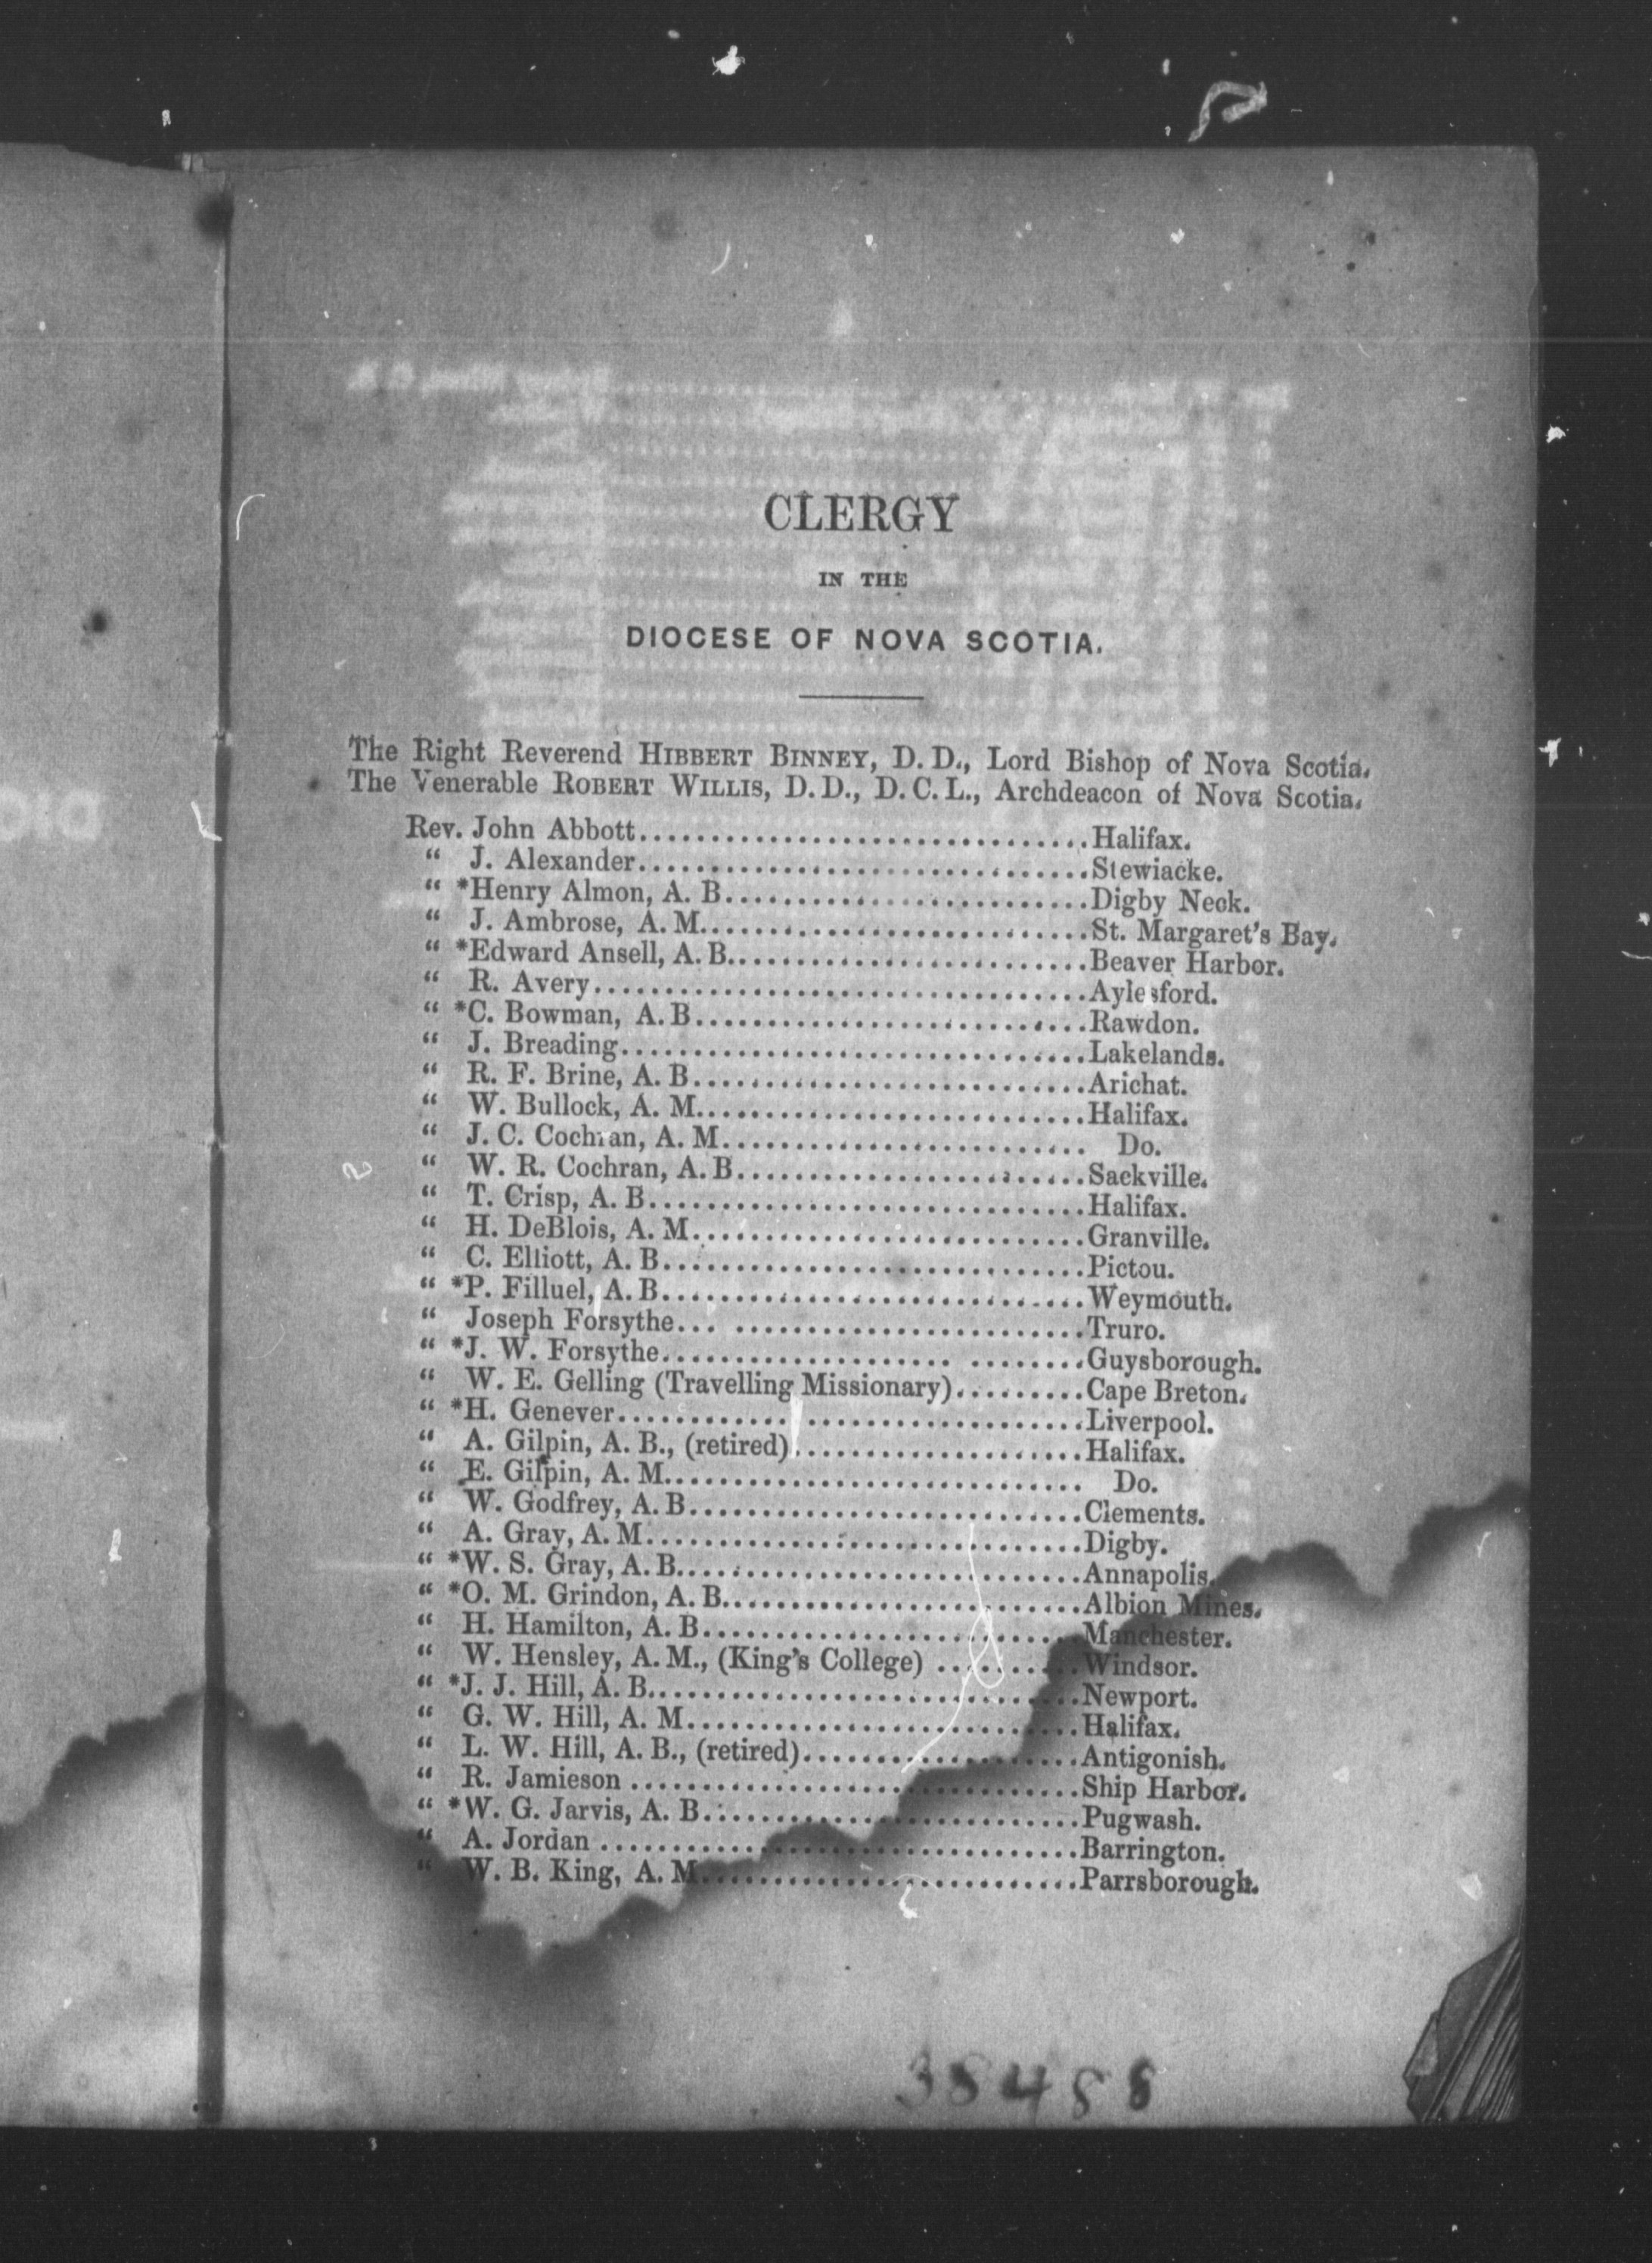 CLERGY
IN THE
DIOCESE OF NOVA SCOTIA.
The Right Reverend HIBBERT BINNEY, D. D., Lord Bishop of Nova Scotia.
The Venerable ROBERT WILLIS, D. D., D. C. L., Archdeacon of Nova Scotia.
Rev. John Abbott................................Halifax.
“ J. Alexander................................Stewiacke.
“ *Henry Almon, A. B..........................Digby Neck.
“ J. Ambrose, A. M...........................St. Margaret's Bay.
“ *Edward Ansell, A. B.........................Beaver Harbor.
“ R. Avery...................................Aylesford.
“ *C. Bowman, A. B............................Rawdon.
“ J. Breading.................................Lakelands.
“ R. F. Brine, A. B............................Arichat.
“ W. Bullock, A. M...........................Halifax.
“ J. C. Cochran, A. M.......................... Do.
“ W. R. Cochran, A. B.........................Sackville.
“ T. Crisp, A. B...............................Halifax.
“ H. DeBlois, A. M............................Granville.
“ C. Elliott, A. B..............................Pictou.
“ *P. Filluel, A. B..............................Weymouth.
“ Joseph Forsythe... .........................Truro.
“ *J. W. Forsythe.................... ........Guysborough.
“ W. E. Gelling (Travelling Missionary).........Cape Breton.
“ *H. Genever............ ....................Liverpool.
“ A. Gilpin, A. B., (retired).....................Halifax.
“ E. Gilpin, A. M.............................. Do.
“ W. Godfrey, A. B............................Clements.
“ A. Gray, A. M...............................Digby.
“ *W. S. Gray, A. B.............................Annapolis.
“ *O. M. Grindon, A. B..........................Albion Mines.
“ H. Hamilton, A. B...........................Manchester.
“ W. Hensley, A. M., (King's College) ..........Windsor.
“ *J. J. Hill, A. B...............................Newport.
“ G. W. Hill, A. M............................Halifax.
“ L. W. Hill, A. B., (retired)....................Antigonish.
“ R. Jamieson ................................Ship Harbor.
“ *W. G. Jarvis, A. B...........................Pugwash.
“ A. Jordan ..................................Barrington.
“ W. B. King, A. M...........................Parrsborough.
38488